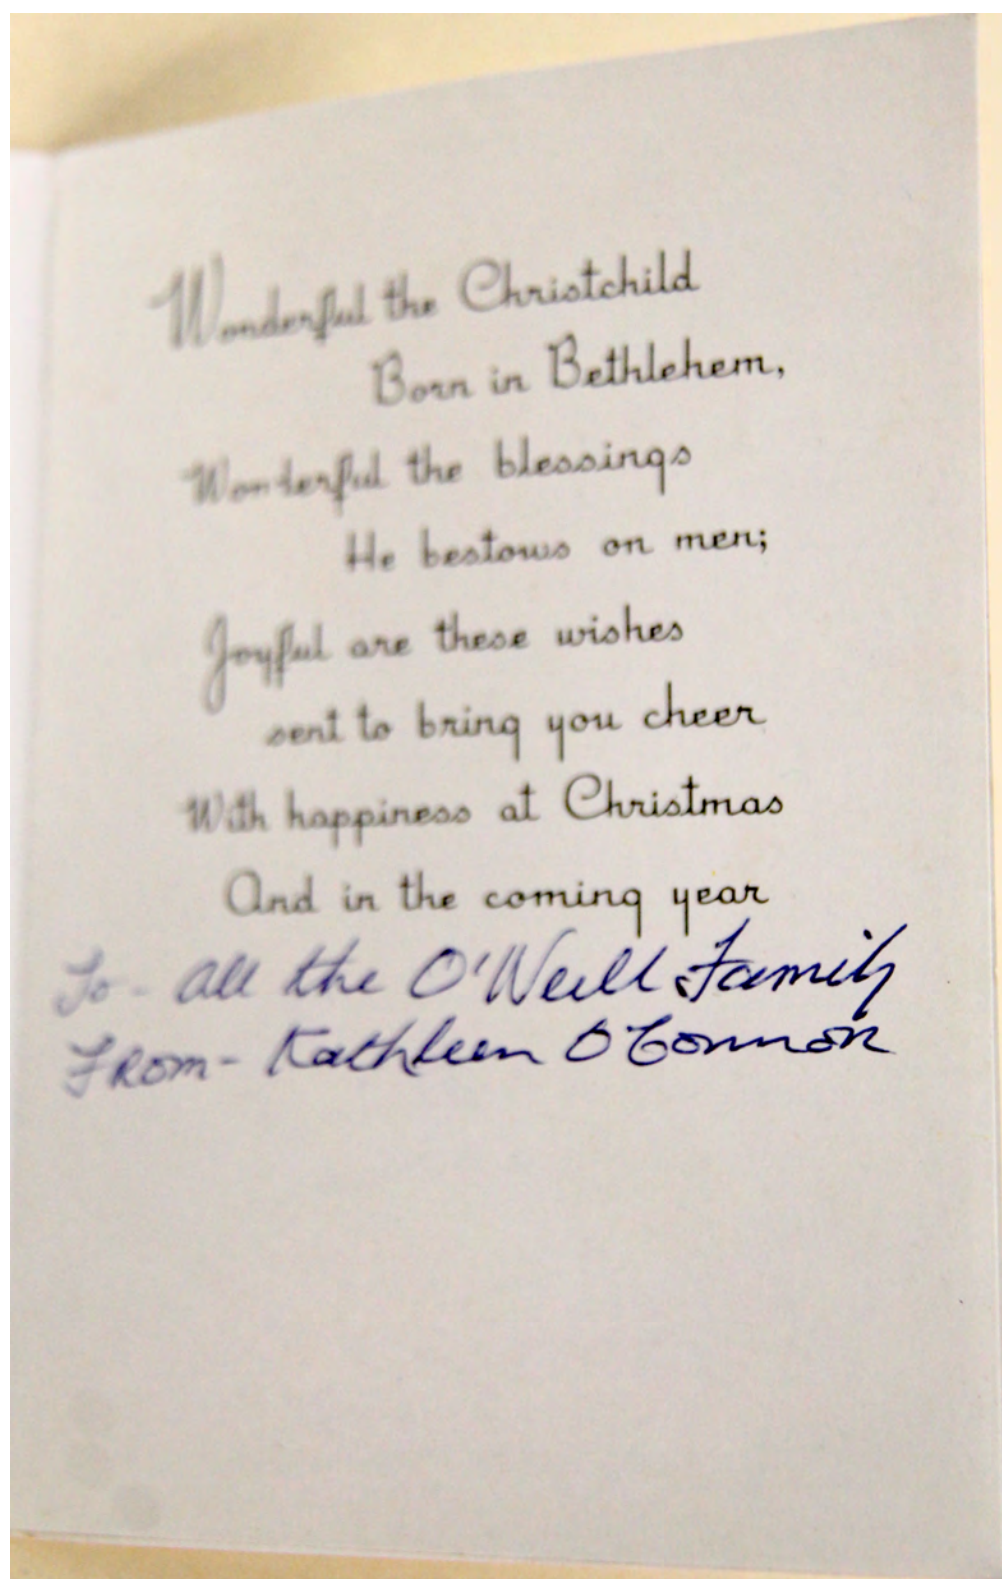 Wonderful the Christchild
Born in Bethlehem,
Wonderful the blessings
He bestows on men;
Joyful are these wishes
sent to bring you cheer
With happiness at Christmas
And in the coming year
To - All the O'Neill Family
From - Kathleen O'Connor